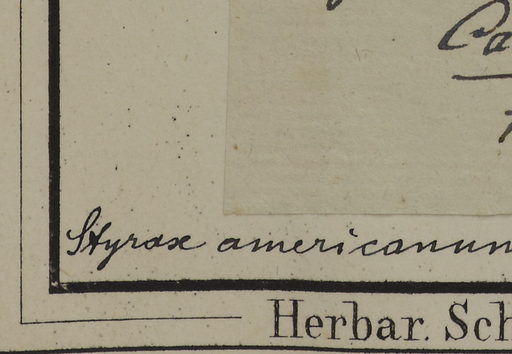 Ca
Styrax americanum
Herbar. Sch